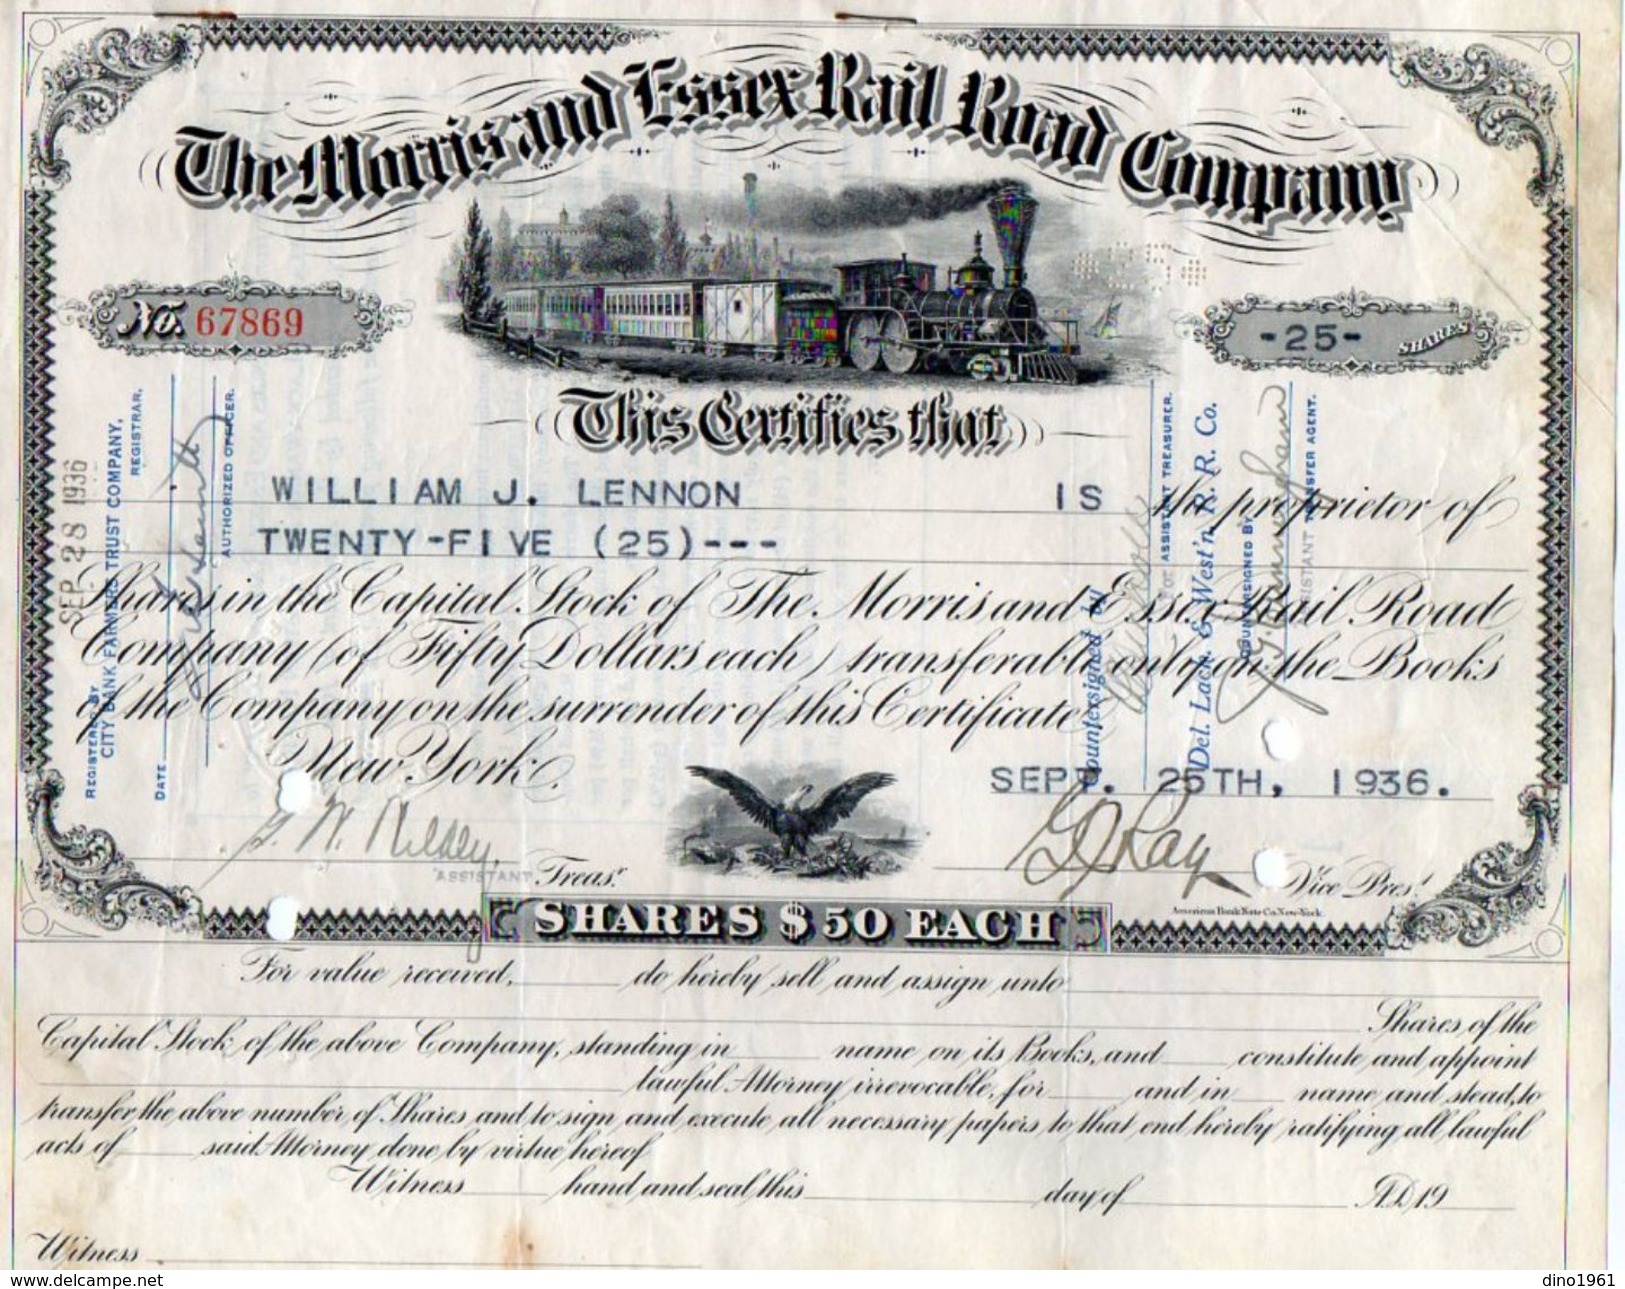 The Morris and Essex Rail Road Company
No. 67869
-25- SHARES
This Certifies that
WILLIAM J. LENNON IS the proprietor of
TWENTY-FIVE (25)---
Shares in the Capital Stock of The Morris and Essex Rail Road
Company (of Fifty Dollars each) transferable only on the Books
of the Company on the surrender of this Certificate
New York.
SEPT. 25TH, 1936.
ASSISTANT Treasr.
G D Ray
Vice Prest.
American Bank Note Co. New-York.
SHARES $50 EACH
SEP 28 1936
REGISTERED BY
CITY BANK FARMERS TRUST COMPANY,
REGISTRAR.
DATE
AUTHORIZED OFFICER.
Countersigned by
ASSISTANT TREASURER.
Del. Lack. & West'n R. R. Co.
COUNTERSIGNED BY
ASSISTANT TRANSFER AGENT.
For value received, do hereby sell and assign unto
Shares of the
Capital Stock of the above Company, standing in name on its Books, and constitute and appoint
lawful Attorney irrevocable, for and in name and stead, to
transfer the above number of Shares and to sign and execute all necessary papers to that end hereby ratifying all lawful
acts of said Attorney done by virtue hereof
Witness hand and seal this day of A.D. 19
Witness
www.delcampe.net
dino1961